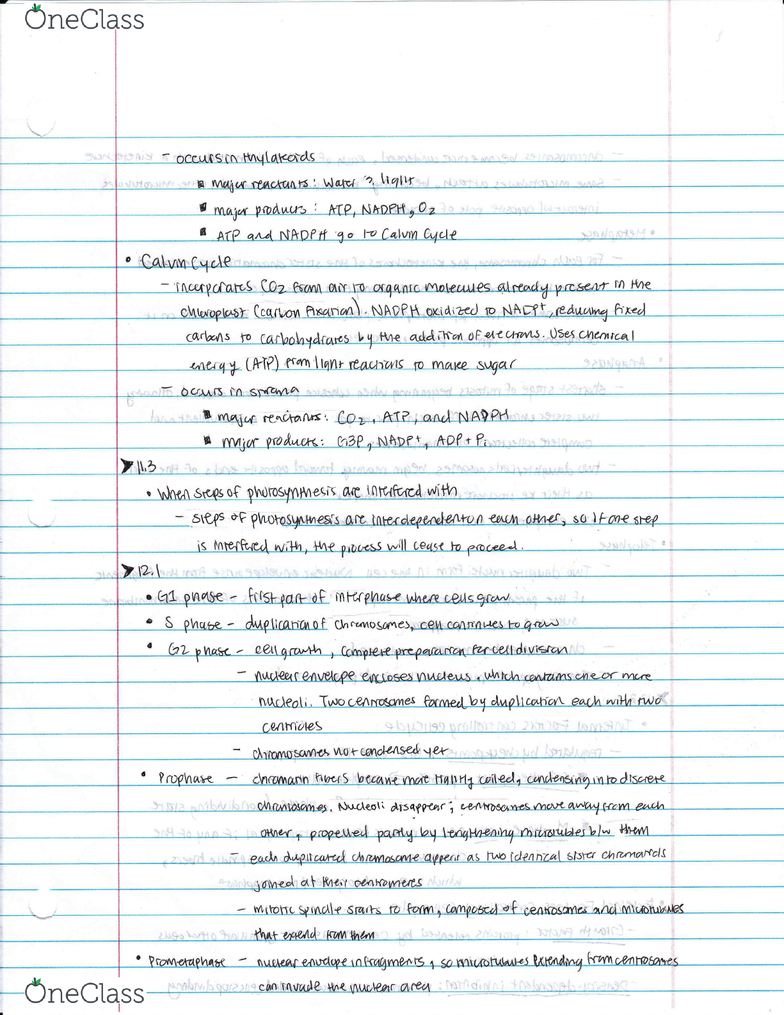 OneClass
- occurs in thylakoids
▪ major reactants: Water & light
▪ major products: ATP, NADPH, O2
▪ ATP and NADPH go to Calvin Cycle
• Calvin Cycle
- incorporates CO2 from air to organic molecules already present in the
chloroplast (carbon fixation). NADPH oxidized to NADP+, reducing fixed
carbons to carbohydrates by the addition of electrons. Uses chemical
energy (ATP) from light reactions to make sugar
- occurs in stroma
▪ major reactants: CO2, ATP, and NADPH
▪ major products: G3P, NADP+, ADP + Pi
➤ 11.3
• When steps of photosynthesis are interfered with
- steps of photosynthesis are interdependent on each other, so if one step
is interfered with, the process will cease to proceed.
➤ 12.1
• G1 phase - first part of interphase where cells grow
• S phase - duplication of chromosomes, cell continues to grow
• G2 phase - cell growth, complete preparation for cell division
- nuclear envelope encloses nucleus, which contains one or more
nucleoli. Two centrosomes formed by duplication each with two
centrioles
- chromosomes not condensed yet
• Prophase - chromatin fibers became more tightly coiled, condensing into discrete
chromosomes. Nucleoli disappear; centrosomes move away from each
other, propelled partly by lengthening microtubules b/w them
- each duplicated chromosome appear as two identical sister chromatids
joined at their centromeres
- mitotic spindle starts to form, composed of centrosomes and microtubules
that extend from them
• Prometaphase - nuclear envelope in fragments, so microtubules extending from centrosomes
can invade the nuclear area
OneClass